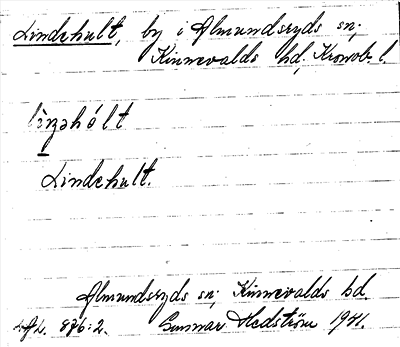 Lindehult, by i Almundsryds sn;
Kinnevalds hd; Kronob. l.
Lindehult.
Almundsryds sn; Kinnevalds hd.
876:2. Gunnar Hedström 1941.